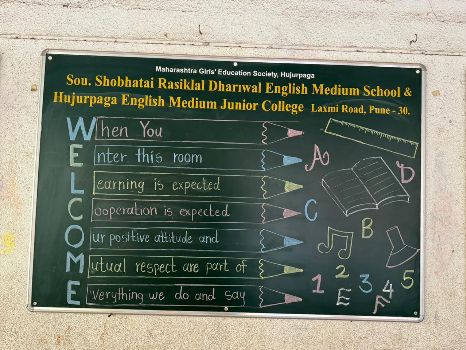 Maharashtra Girls' Education Society, Hujurpaga
Sou. Shobhatai Rasiklal Dhariwal English Medium School &
Hujurpaga English Medium Junior College Laxmi Road, Pune - 30.
When You
Enter this room
Learning is expected
Cooperation is expected
Our positive attitude and
Mutual respect are part of
Everything we do and say
A
D
C
B
1 2 3 4 5
E F